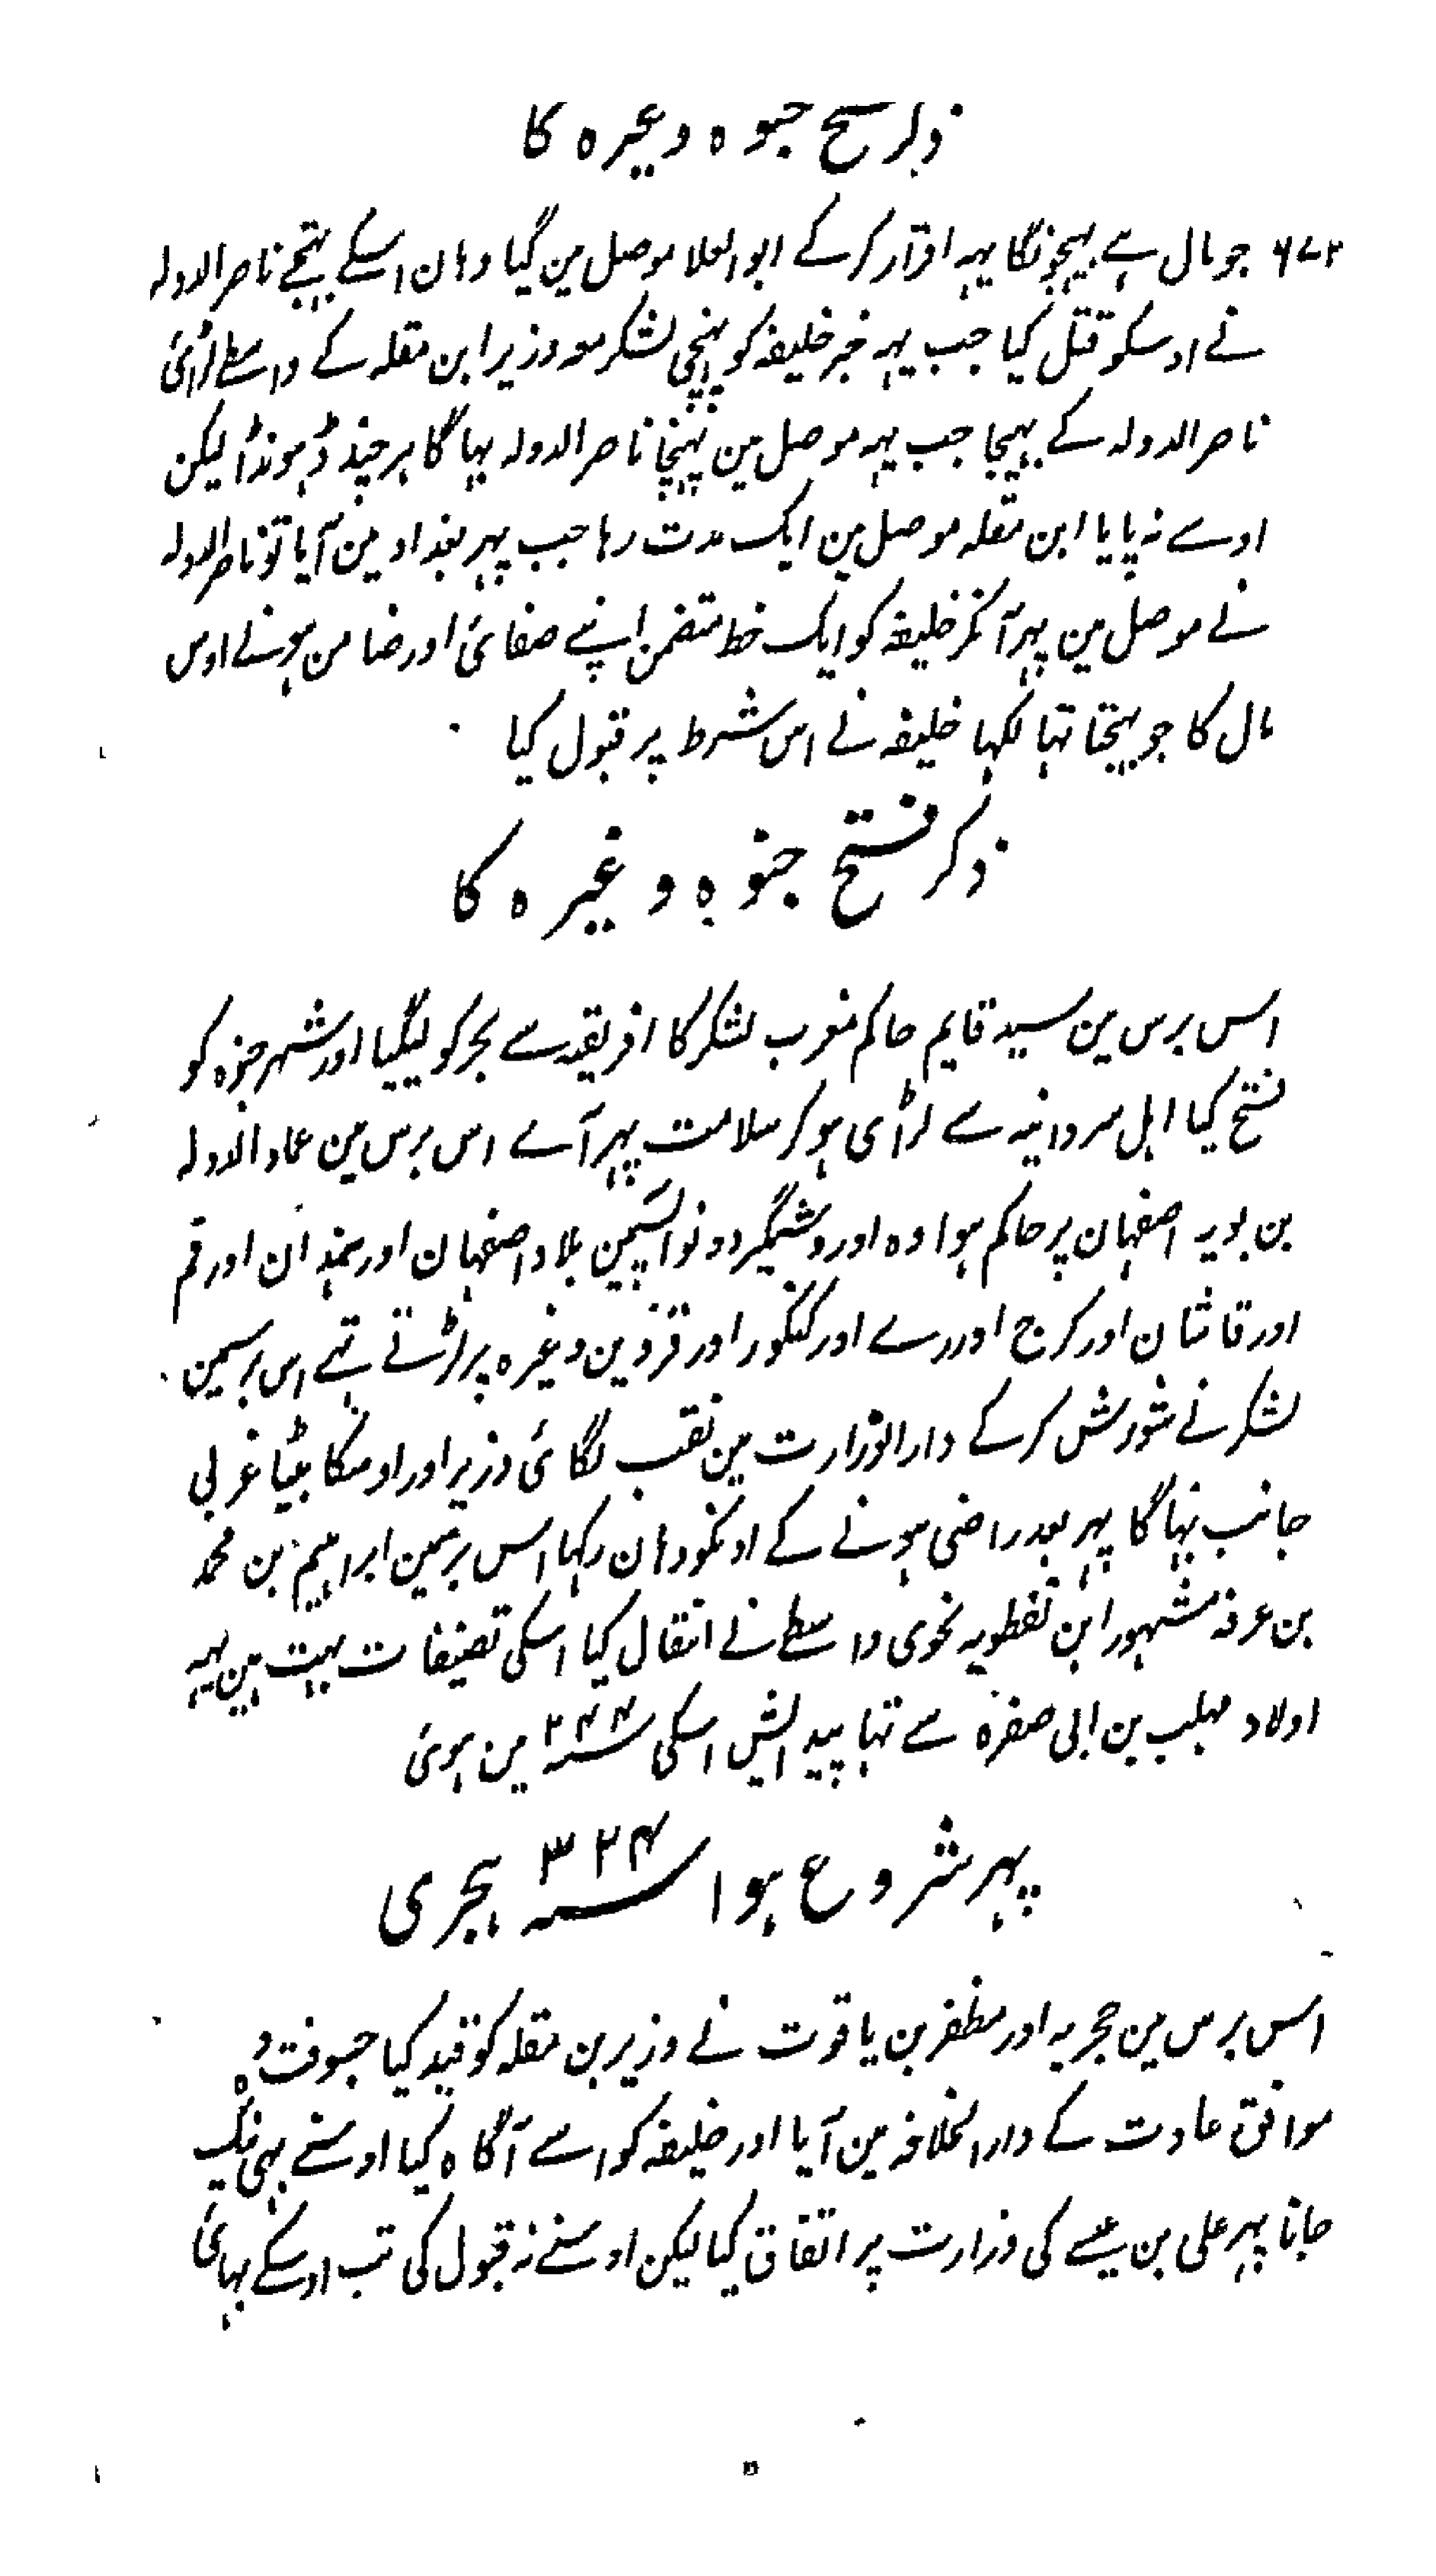 ذکر فتح جنوہ وغیرہ کا
۶۷۲ جو مال ہے بہیجونگا یہہ اقرار کر کے ابو العلا موصل مین گیا وہان اسکے بہتیجے ناصر الدولہ
نے اوسکو قتل کیا جب یہہ خبر خلیفہ کو پہنچی لشکر معہ وزیر ابن مقلہ کے واسطے لڑائی
ناصر الدولہ کے بہیجا جب یہہ موصل مین پہنچا ناصر الدولہ بہاگا ہر چند ڈہونڈا لیکن
اوسے نہ پایا ابن مقلہ موصل مین ایک مدت رہا جب پہر بغداد مین آیا تو ناصر الدولہ
نے موصل مین پہر آنکر خلیفہ کو ایک خط متضمن اپنے صفائی اور ضامن ہونے اوس
مال کا جو بہیجتا تہا لکہا خلیفہ نے اس شرط پر قبول کیا
ذکر فتح جنوہ وغیرہ کا
اس برس مین سید قایم حاکم مغرب لشکر کا افریقہ سے بحر کو لیگیا اور شہر جنوہ کو
فتح کیا اہل سردانیہ سے لڑای ہو کر سلامت پہر آے اس برس مین عماد الدولہ
بن بویہ اصفہان پر حاکم ہوا وہ اور وشمگیر دونو آپسمین بلاد اصفہان اور ہمذان اور قم
اور قاشان اور کرج اور رے اور کنکور اور قزوین وغیرہ پر لڑتے تہے اس برسمین
لشکر نے شورش کر کے دار الوزارت مین نقب لگائی وزیر اور اوسکا بیٹا غربی
جانب بہاگا پہر بعد راضی ہونے کے اونکو وہان رکہا اس برسمین ابراہیم بن محمد
بن عرفہ مشہور ابن نفطویہ نحوی واسطے نے انتقال کیا اسکی تصنیفات بہت ہین یہہ
اولاد مہلب بن ابی صفرہ سے تہا پیدایش اسکی سنہ ۲۴۴ مین ہوئی
پہر شروع ہوا سنہ ۳۲۴ ہجری
اس برس مین حجریہ اور مظفر بن یاقوت نے وزیر بن مقلہ کو قید کیا جسوقت وہ
موافق عادت کے دار الخلافہ مین آیا اور خلیفہ کو اسے آگاہ کیا اوسنے بہی نیک
جانا پہر علی بن عیسے کی وزارت پر اتفاق کیا لیکن اوسنے نہ قبول کی تب اوسکے بہائی